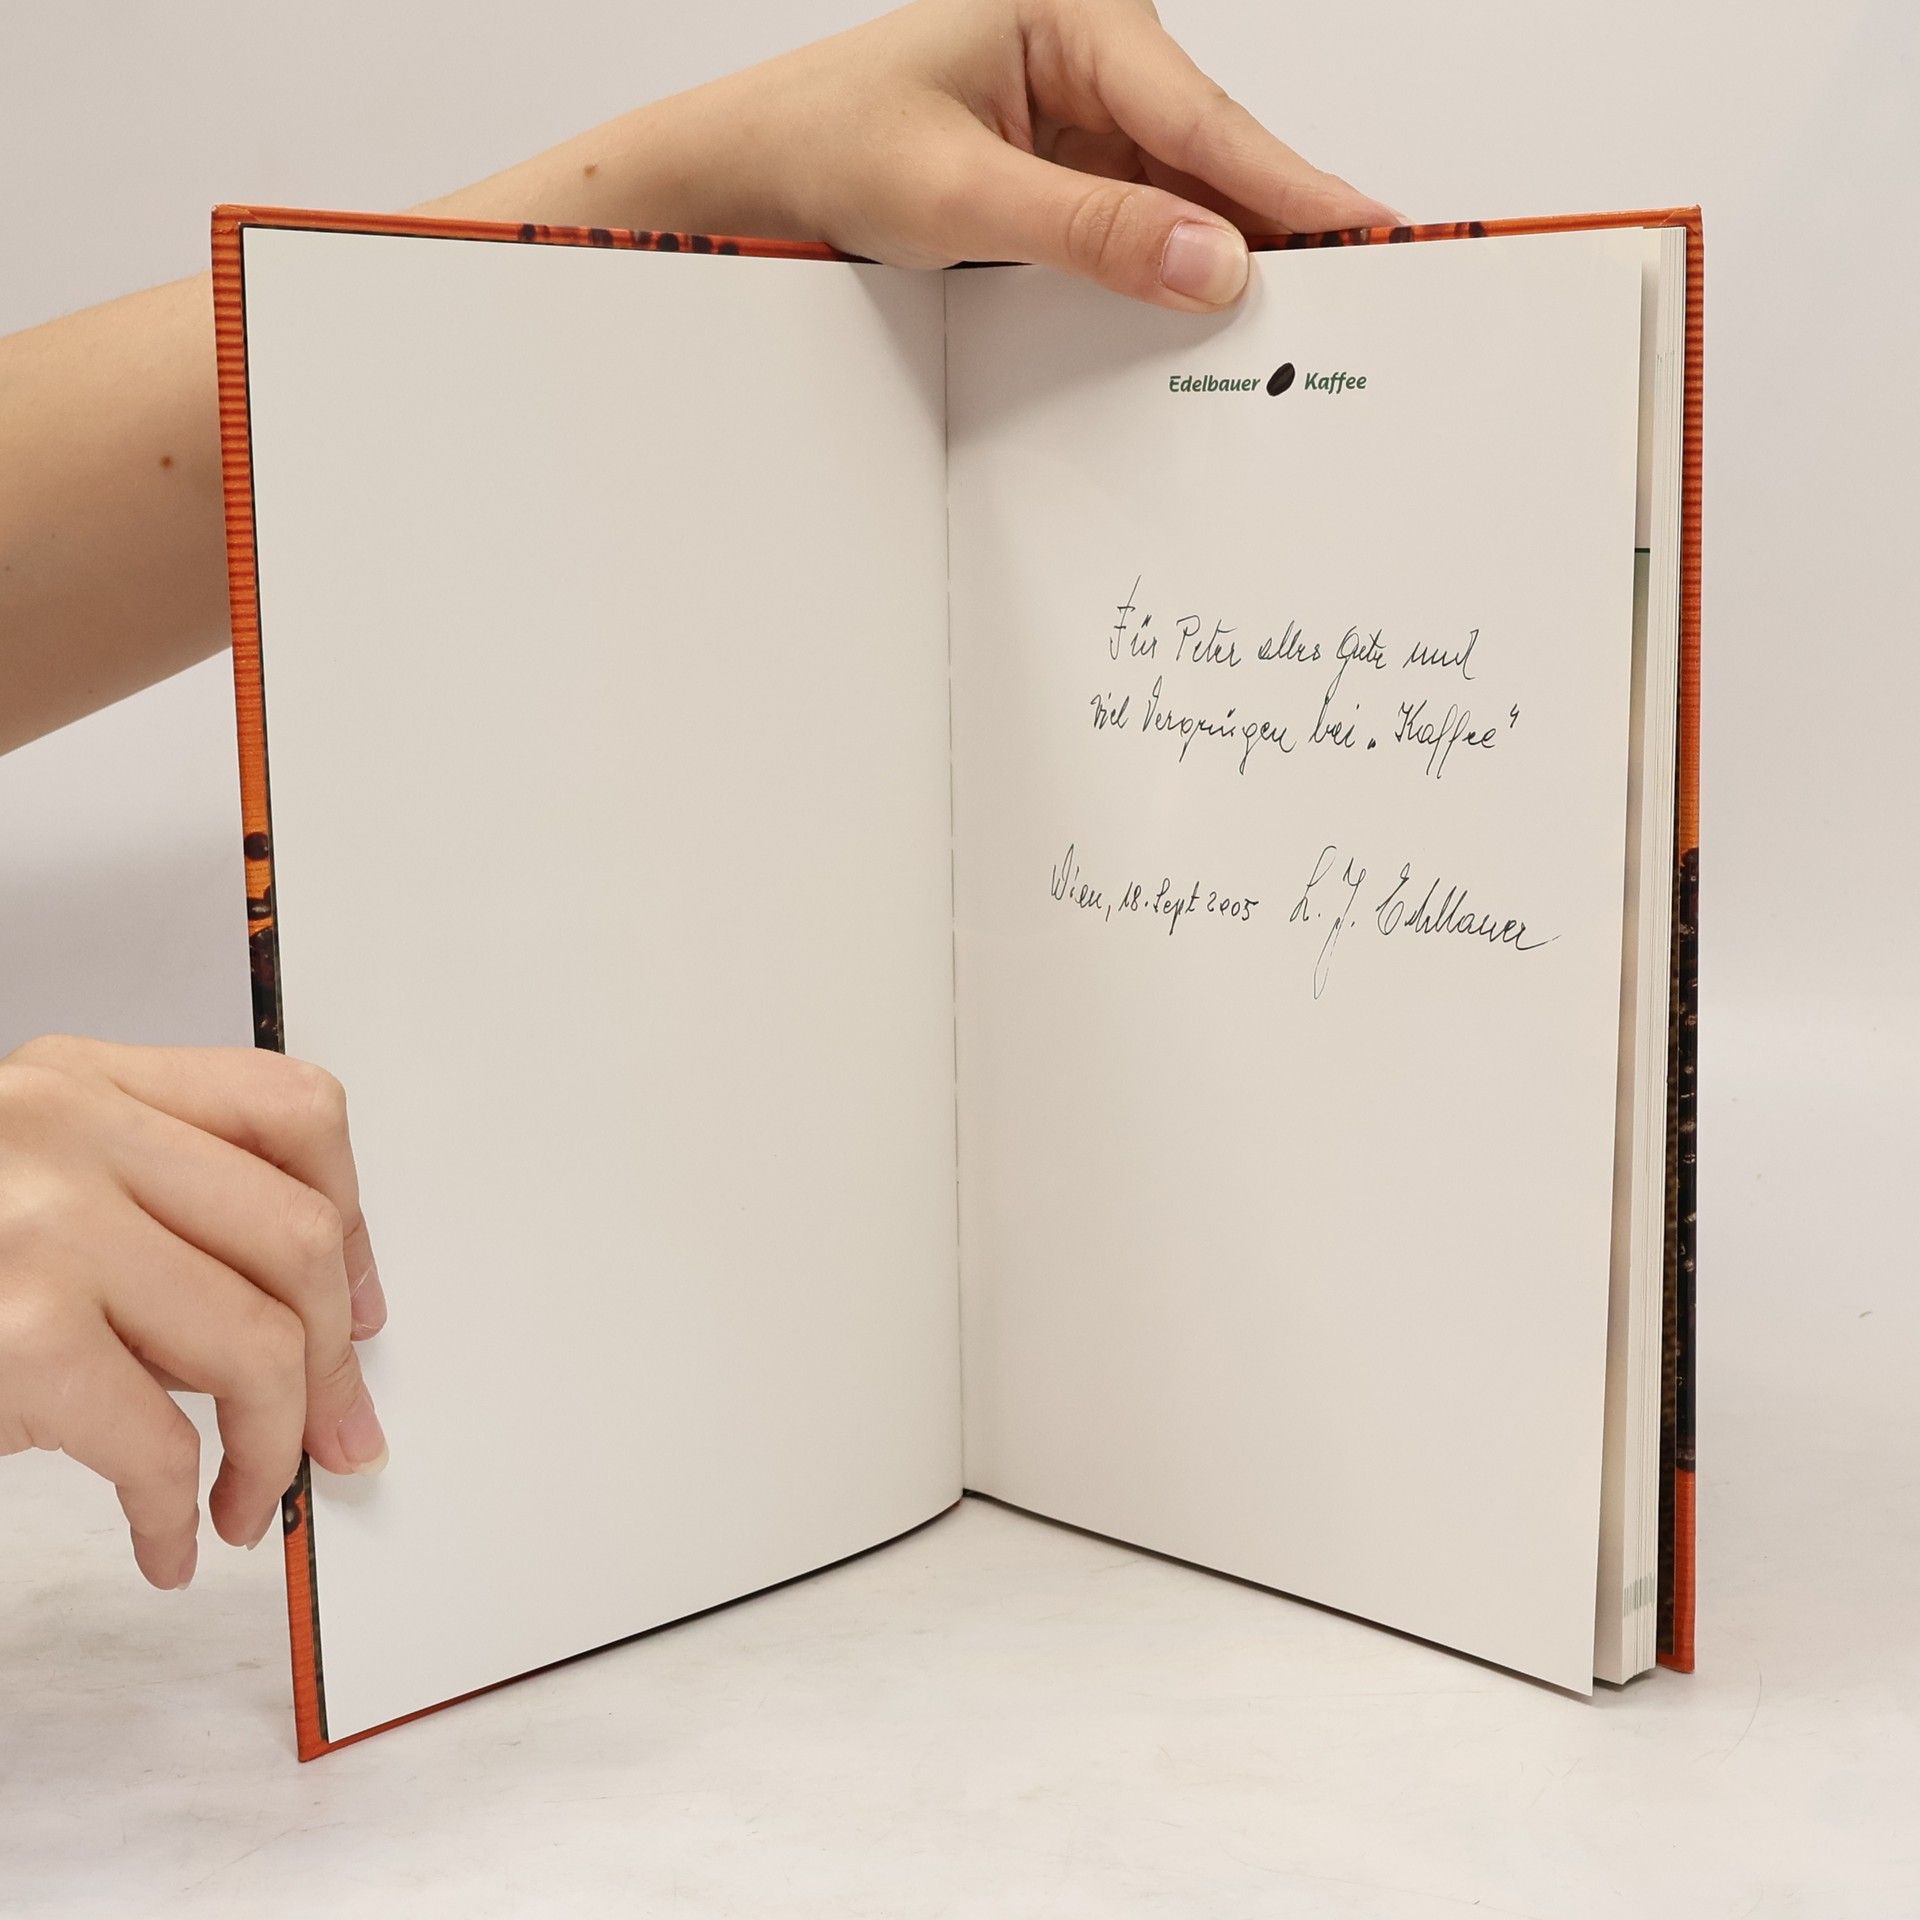 Edelbauer Kaffee
Für Peter alles Gute und
viel Vergnügen bei „Kaffee“
Wien, 18. Sept 2005 L. J. Edelbauer